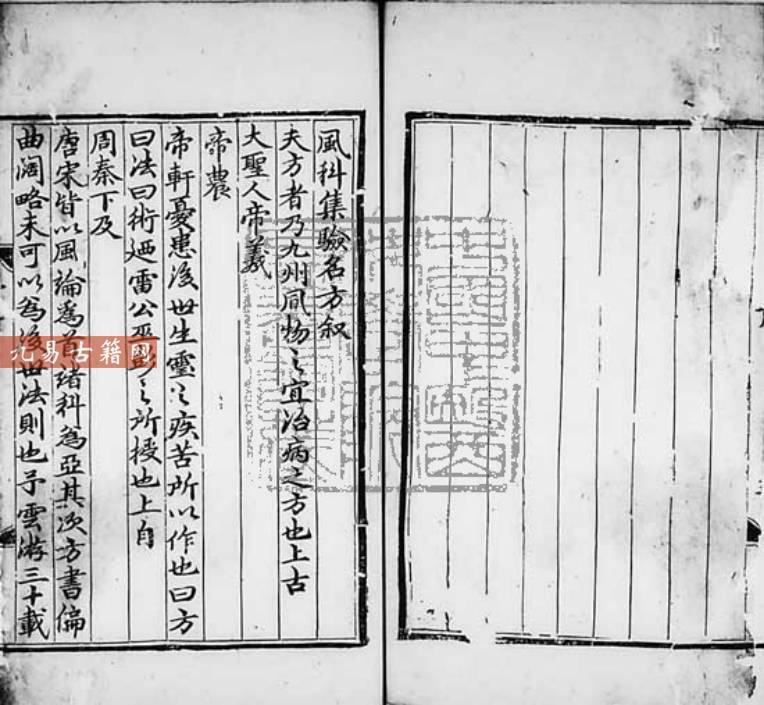 風科集驗名方叙
夫方者乃九州風物之宜治病之方也上古
大聖人帝羲
帝農
帝軒憂患後世生靈之疾苦所以作也曰方
曰法曰術廼雷公巫彭之所授也上自
周秦下及
唐宋皆以風論為首諸科為亞其次方書偏
曲濶略未可以為後世法則也予雲游三十載
九易古籍网